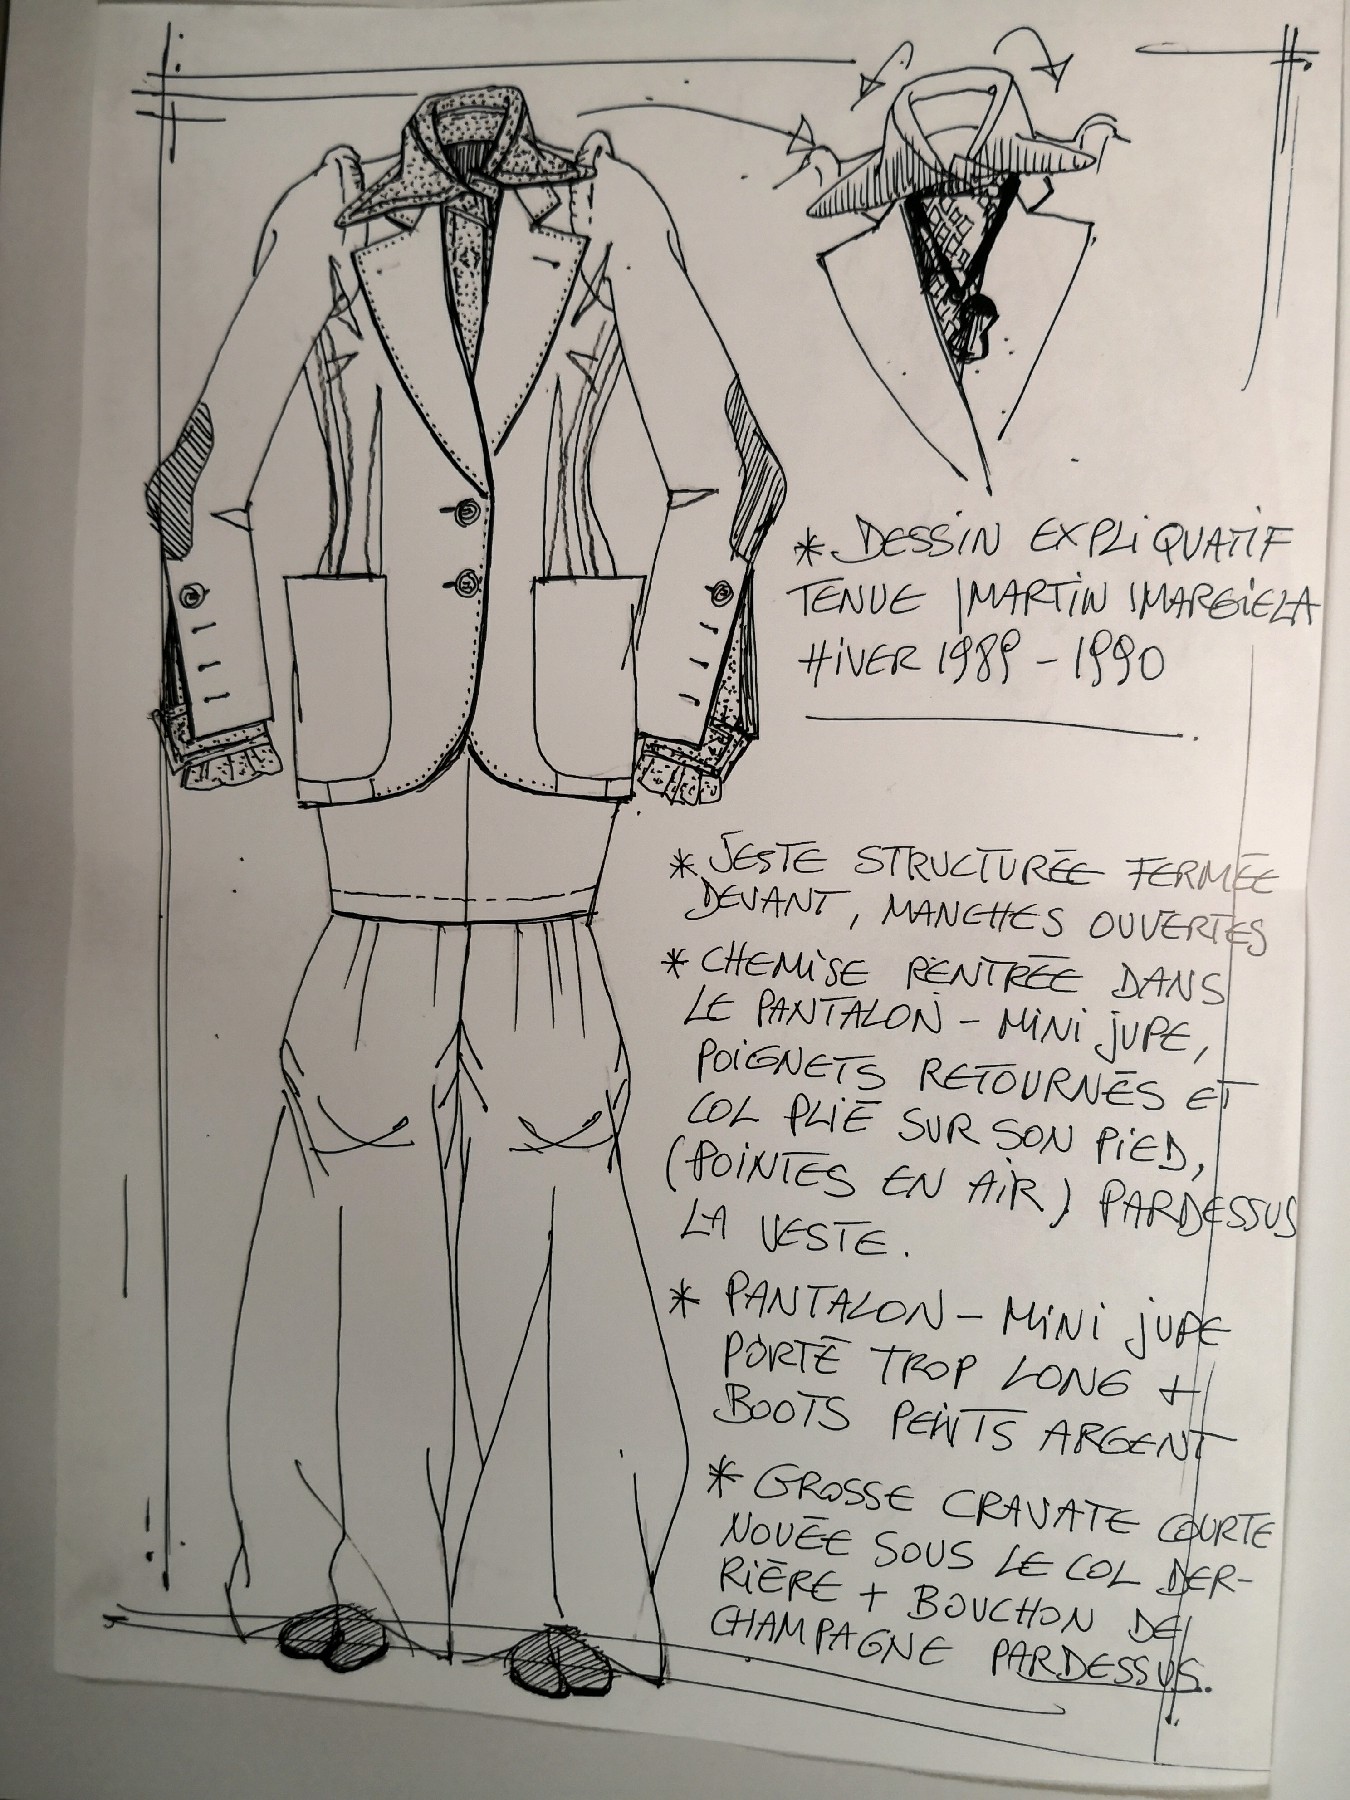 * DESSIN EXPLIQUATIF
TENUE MARTIN MARGIELA
HIVER 1989 - 1990
* VESTE STRUCTURÉE FERMÉE
DEVANT, MANCHES OUVERTES
* CHEMISE RENTRÉE DANS
LE PANTALON - MINI JUPE,
POIGNETS RETOURNÉS ET
COL PLIÉ SUR SON PIED,
(POINTES EN AIR) PARDESSUS
LA VESTE.
* PANTALON - MINI JUPE
PORTÉ TROP LONG +
BOOTS PEINTS ARGENT
* GROSSE CRAVATE COURTE
NOUÉE SOUS LE COL DER-
RIÈRE + BOUCHON DE
CHAMPAGNE PARDESSUS.